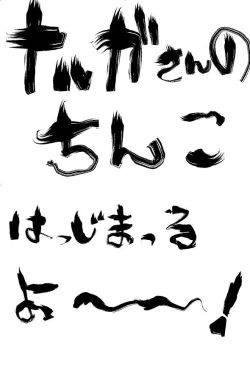 ナルガさんの
ちんこ
はっじまっる
よ〜!